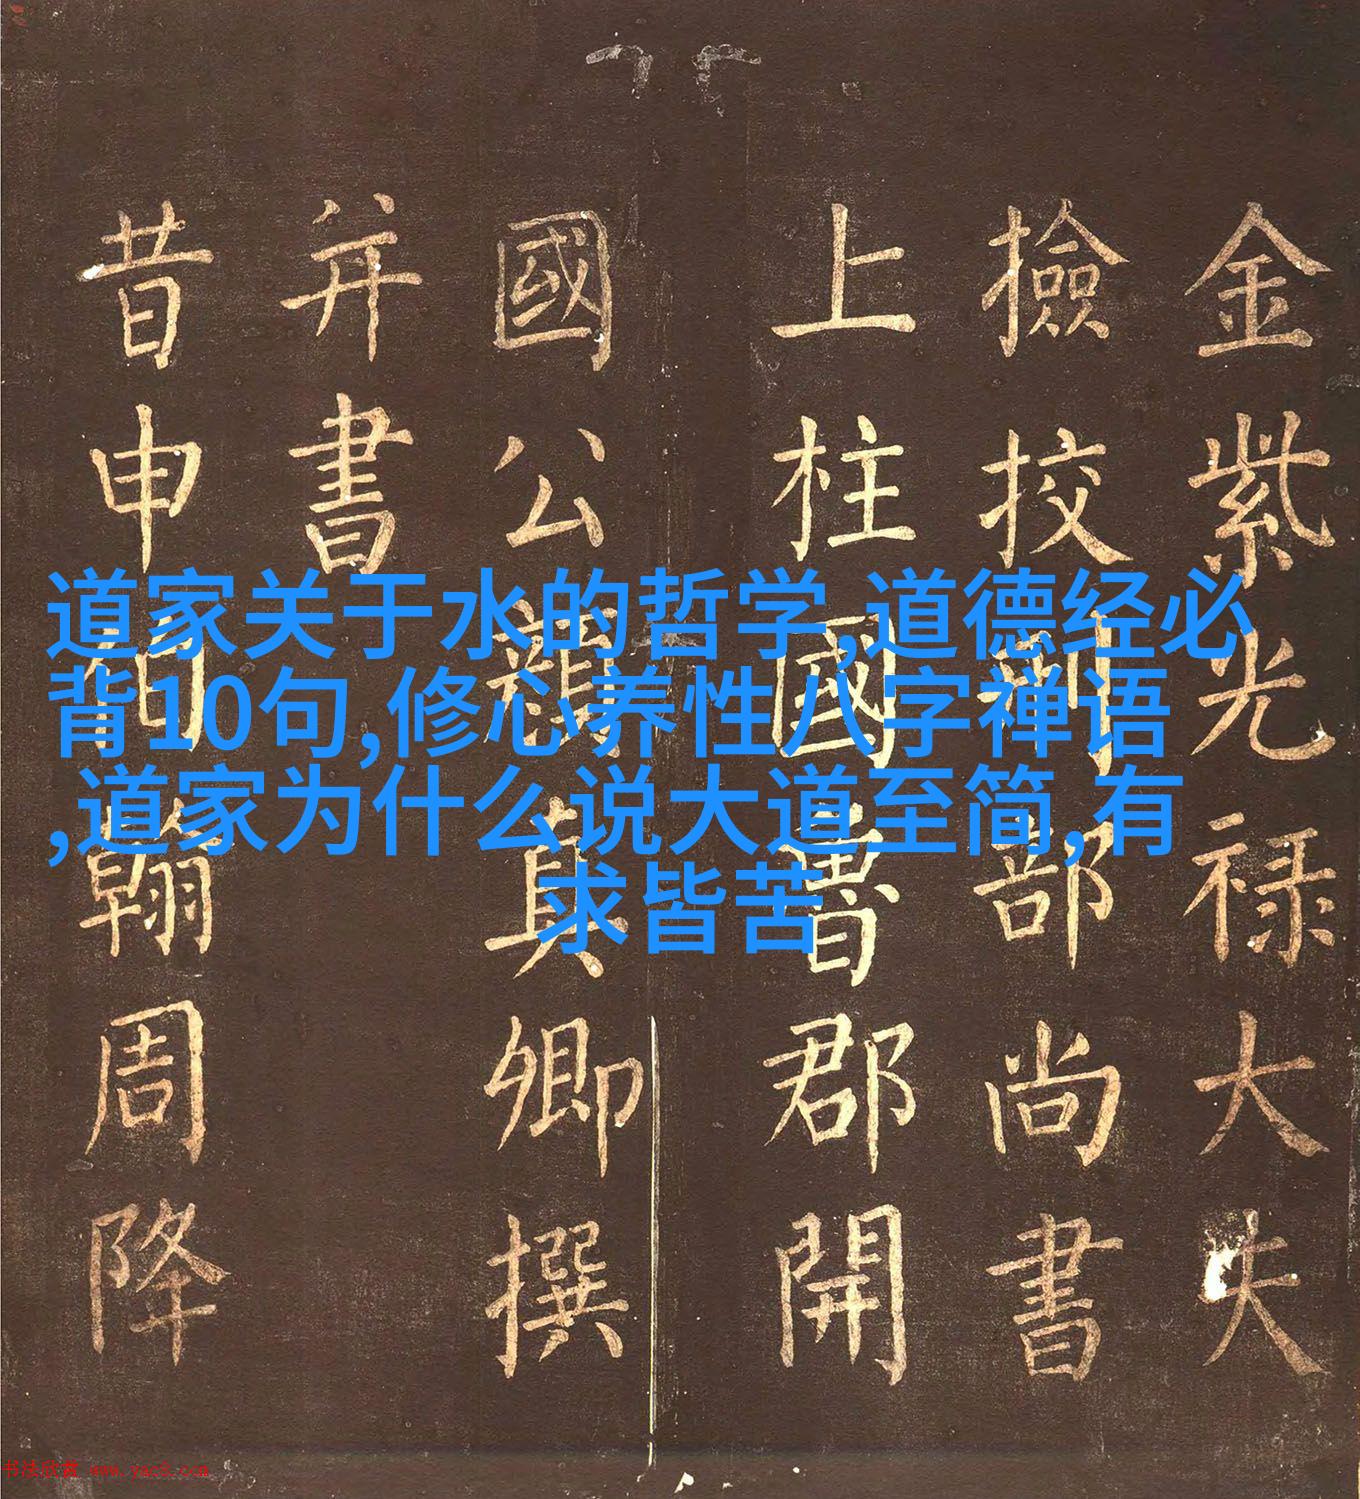 金紫光禄大夫
撿挍刑部尚書
上柱國魯郡開
國公顏真卿撰
并書
昔申伯翰周降
道家关于水的哲学,道德经必
背10句,修心养性八字禅语
,道家为什么说大道至简,有
求皆苦
书法欣赏 www.yac8.com